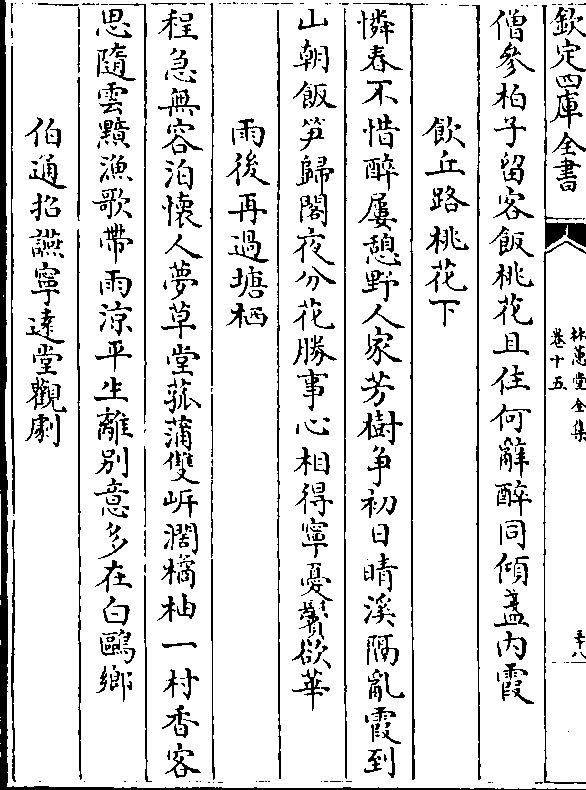 欽定四庫全書
林蕙堂全集
卷十五
十八
僧參柏子留客飯桃花且住何辭醉同傾盞内霞
飲丘路桃花下
憐春不惜醉屢憩野人家芳樹争初日晴溪隔亂霞到
山朝飯笋歸閣夜分花勝事心相得寧憂鬢欲華
雨後再過塘栖
程急無容泊懷人夢草堂菰蒲雙㟁濶橘柚一村香客
思隨雲黯漁歌帶雨凉平生離别意多在白鷗鄉
伯通招讌寧遠堂觀劇